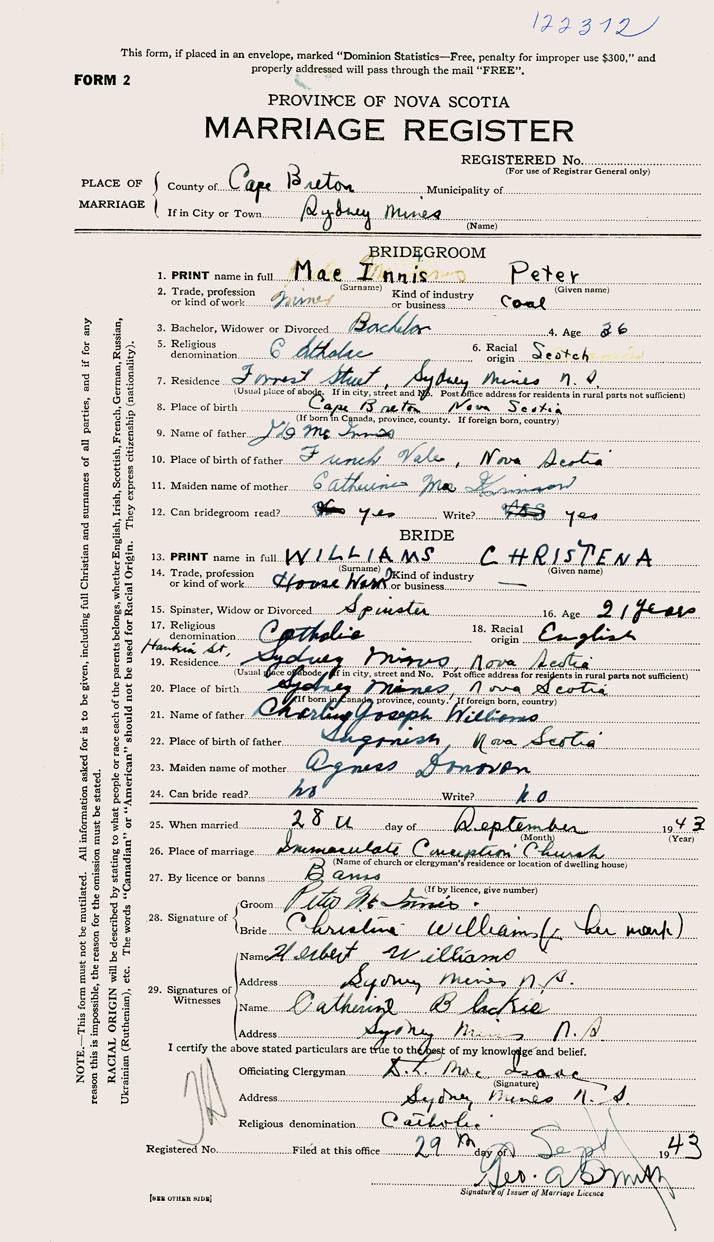 122312
This form, if placed in an envelope, marked "Dominion Statistics—Free, penalty for improper use $300," and
properly addressed will pass through the mail "FREE".
FORM 2
PROVINCE OF NOVA SCOTIA
MARRIAGE REGISTER
REGISTERED No.
(For use of Registrar General only)
PLACE OF MARRIAGE
County of Cape Breton Municipality of
If in City or Town Sydney Mines
(Name)
BRIDEGROOM
1. PRINT name in full Mac Innis Peter
(Surname) (Given name)
2. Trade, profession or kind of work Miner Kind of industry or business Coal
3. Bachelor, Widower or Divorced Bachelor 4. Age 36
5. Religious denomination Catholic 6. Racial origin Scotch
7. Residence Forrest Street, Sydney Mines N. S.
(Usual place of abode. If in city, street and No. Post office address for residents in rural parts not sufficient)
8. Place of birth Cape Breton Nova Scotia
(If born in Canada, province, county. If foreign born, country)
9. Name of father Mc Innis
10. Place of birth of father French Vale, Nova Scotia
11. Maiden name of mother Catherine Mac
12. Can bridegroom read? yes Write? yes
BRIDE
13. PRINT name in full WILLIAMS CHRISTENA
(Surname) (Given name)
14. Trade, profession or kind of work House Work Kind of industry or business —
15. Spinster, Widow or Divorced Spinster 16. Age 21 years
17. Religious denomination Catholic 18. Racial origin English
Hankin St,
19. Residence Sydney Mines, Nova Scotia
(Usual place of abode. If in city, street and No. Post office address for residents in rural parts not sufficient)
20. Place of birth Sydney Mines, Nova Scotia
(If born in Canada, province, county. If foreign born, country)
21. Name of father Charley Joseph Williams
22. Place of birth of father Ingonish, Nova Scotia
23. Maiden name of mother Agness Donovan
24. Can bride read? no Write? no
25. When married 28th day of September 1943
(Month) (Year)
26. Place of marriage Immaculate Conception Church
(Name of church or clergyman's residence or location of dwelling house)
27. By licence or banns Banns
(If by licence, give number)
28. Signature of
Groom Peter McInnis.
Bride Christine Williams (x her mark)
29. Signatures of Witnesses
Name Herbert Williams
Address Sydney Mines N.S.
Name Catherine Blackie
Address Sydney Mines N.S.
I certify the above stated particulars are true to the best of my knowledge and belief.
Officiating Clergyman Mac Isaac
(Signature)
Address Sydney Mines N.S.
Religious denomination Catholic
Registered No. Filed at this office 29th day of Sept 1943
Geo. A Smith
Signature of Issuer of Marriage Licence
[SEE OTHER SIDE]
NOTE.—This form must not be mutilated. All information asked for is to be given, including full Christian and surnames of all parties, and if for any
reason this is impossible, the reason for the omission must be stated.
RACIAL ORIGIN will be described by stating to what people or race each of the parents belongs, whether English, Irish, Scottish, French, German, Russian,
Ukrainian (Ruthenian), etc. The words "Canadian" or "American" should not be used for Racial Origin. They express citizenship (nationality).